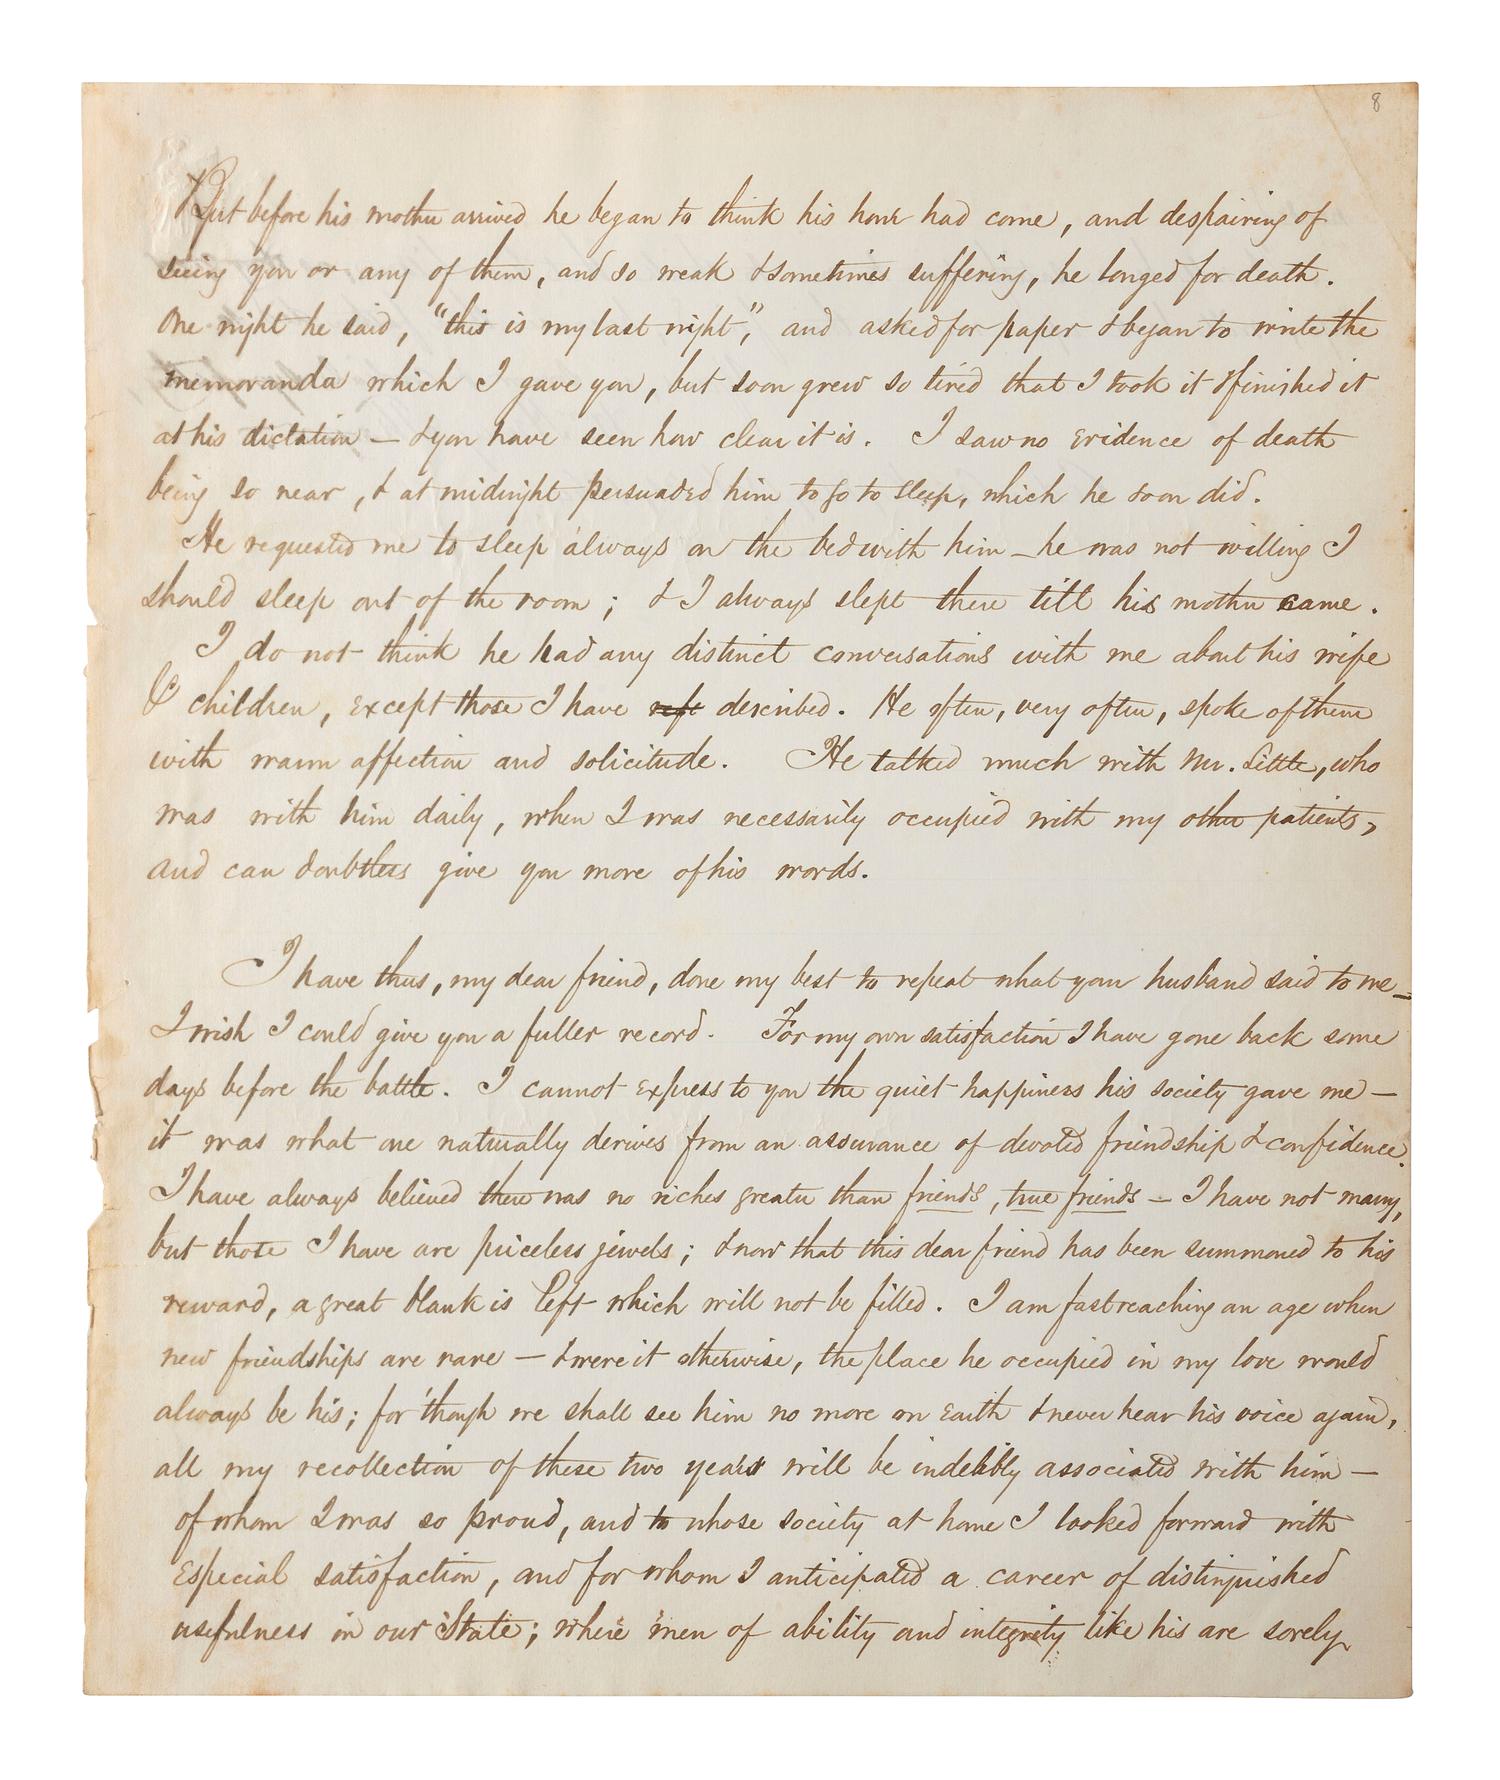 8
But before his mother arrived he began to think his hour had come, and despairing of
seeing you or any of them, and so weak & sometimes suffering, he longed for death.
One night he said, "this is my last night", and asked for paper & began to write the
memoranda which I gave you, but soon grew so tired that I took it & finished it
at his dictation — & you have seen how clear it is. I saw no evidence of death
being so near, & at midnight persuaded him to go to sleep, which he soon did.
He requested me to sleep always on the bed with him — he was not willing I
should sleep out of the room; & I always slept there till his mother came.
I do not think he had any distinct conversations with me about his wife
& children, except those I have described. He often, very often, spoke of them
with warm affection and solicitude. He talked much with Mr. Little, who
was with him daily, when I was necessarily occupied with my other patients,
and can doubtless give you more of his words.
I have thus, my dear friend, done my best to repeat what your husband said to me —
I wish I could give you a fuller record. For my own satisfaction I have gone back some
days before the battle. I cannot express to you the quiet happiness his society gave me —
it was what one naturally derives from an assurance of devoted friendship & confidence.
I have always believed there was no riches greater than friends, true friends — I have not many,
but those I have are priceless jewels; & now that this dear friend has been summoned to his
reward, a great blank is left which will not be filled. I am fast reaching an age when
new friendships are rare — & were it otherwise, the place he occupied in my love would
always be his; for though we shall see him no more on Earth & never hear his voice again,
all my recollection of these two years will be indelibly associated with him —
of whom I was so proud, and to whose society at home I looked forward with
especial satisfaction, and for whom I anticipated a career of distinguished
usefulness in our State; where men of ability and integrity like his are sorely